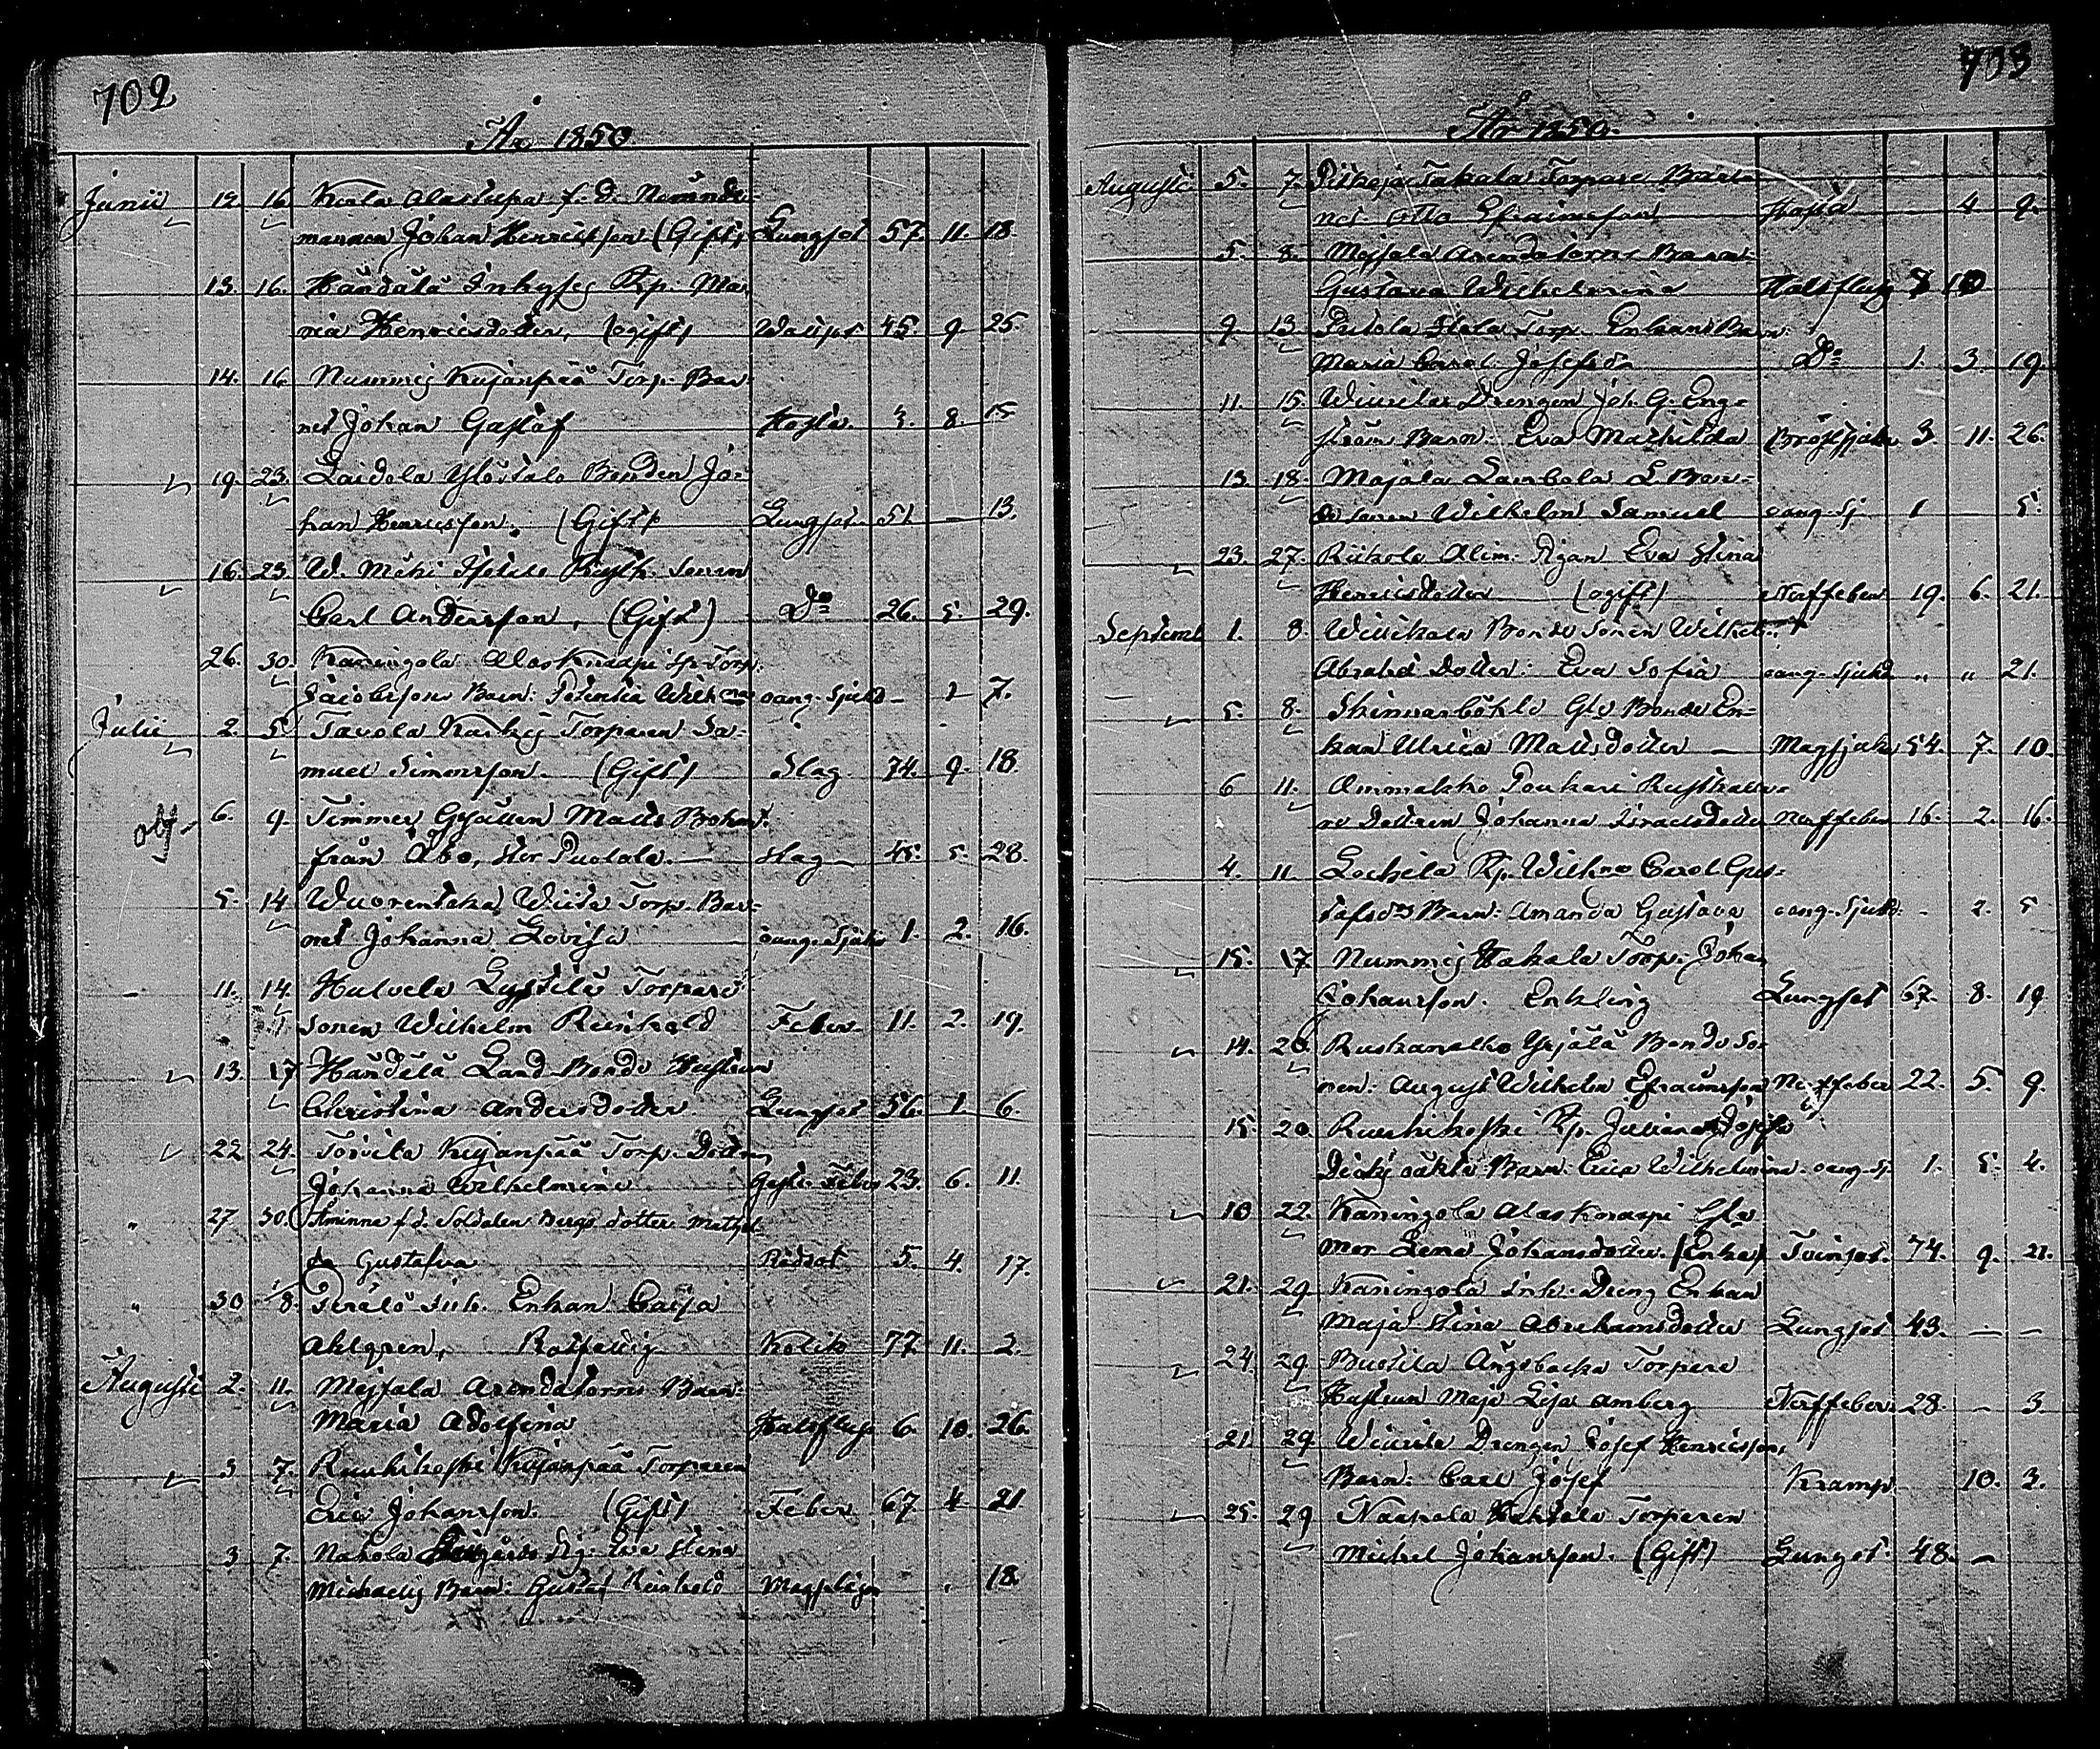 702
År 1850.
Junii 12. 16. Karla Alastupa f. d. Nämnde-
mannen Johan Henricsson (Gift) Lungsot 57. 11. 18
13. 16. Händälä Inhyses Pig. Ma-
ria Henricsdotter, (ogift) Wattsot 45. 9. 25.
14. 16. Nummis Kujanpää Torp. Bar-
net Johan Gustaf Hosta 3. 8. 15.
19. 23. Laidola Ylöstalo Bonden Jo-
han Henricsson. (Gift) Lungsot 51. – 13.
16. 23. W. Mäki Rusth. Sonen
Carl Andersson, (Gift) Do 26. 5. 29.
26. 30. Karingola Alasknaapi Torp.
Jacobssons Barn: Wilhna oang. Sjukd. – 1 7.
Julii 2. 5. Tavola Torparen Sa-
muel Simonsson. (Gift) Slag. 74. 9. 18.
obf. 6. 9. Timmer Gesällen Matts
från Åbo, Stor Puotala. Slag 45. 5. 28.
5. 14. Wuorentaka Torp. Bar-
net Johanna Lovisa oang. Sjukd. 1. 2. 16.
11. 14. Hulvela Torpare
Sonen Wilhelm Reinhold Feber 11. 2. 19.
13. 17 Händälä Land Bonde Hustrun
Christina Andersdotter. Lungsot 56. 1. 6.
22 24. Toivila Kujanpää Torp. Dottern
Johanna Wilhelmina Feber 23. 6. 11.
" 27 30. f. d. Soldaten Bergs dotter Mathil-
da Gustafva Rödsot 5. 4. 17.
" 30 1/8. Perälä Inh. Enkan Caisa
Ahlgren, Rotfattig Kolik 77. 11. 2.
Augusti 2. 11. Mejsala Arendatorns Barn:
Maria Adolfina Halsfluss 6. 10. 26.
3 7. Ruuhikoski Kujanpää Torparen
Eric Johansson. (Gift) Feber 67. 4 21
3 7. Nakola Pig. Eva Stina
Michaels Barn: Gustaf Reinhold Magplågor – . 18.
703
År 1850.
Augusti 5. 7. Takala Torpare Bar-
net Otto Efraimsson Hosta – 4 9.
5. 8. Mejsala Arendatorns Barn:
Gustava Wilhelmina Halsfluss 7 10
9. 13. Torp. Enkans Barn:
Maria Carol. Josefsdr Do 1. 3. 19.
11. 15. Wiurila Drengen Joh. G. Eng-
ström Barn. Eva Mathilda Bröstsjukd. 3. 11. 26.
13. 18. Majala Lambola L. Bon-
de Sonen Wilhelm Samuel oang. Sj. 1 5.
23. 27. Rickola Alim. Pigan Eva Stina
Henricsdotter (ogift) Nerffeber 19. 6. 21.
Septemb. 1. 8. Bonde Sonen Wilhelm
Dotter: Eva Sofia oang. Sjukd. " " 21.
5. 8. Skinnarböhle Gls Bonde En-
kan Ulrica Mattsdotter – Magsjukd. 54. 7. 10.
6 11. Ammakko Poukari Rusthålla-
re Dottren Johanna Israelsdotter Nerffeber 16. 2. 16.
4. 11 Lockila Pig. Wilhna Carol. Gus-
tafsdrs Barn: Amanda Gustava oang. Sjukd. – 2. 5
15. 17 Nummis Hakala Torp. Johan
Johansson. Enkling Lungsot 67. 8. 19
14. 20. Ruskanalho Yrjälä Bonde So-
nen: August Wilhelm Efraimsson Nerffeber 22. 5. 9.
15. 20. Ruuhikoski Pig. Juliana Josefs
oäkta Barn. Erica Wilhelmina oang. Sj. 1. 5. 4.
18 22. Karingola Alasknaapi Gla
Mor Lena Johansdotter. (Enka) Tvinsot. 74. 9. 21.
21. 29 Karingola Inh. Dreng Enkan
Maja Stina Abrahamsdotter Lungsot 43. – –
24. 29. Buotila Ångsbacka Torpare
Hustrun Maja Lisa Amberg Nerffeber 28. – 3.
21. 29. Wiurila Drengen Josef Henricssons
Barn: Carl Josef Kramp. 10. 3.
25. 29 Naapala Torparen
Michel Johansson. (Gift) Lungsot 48. –